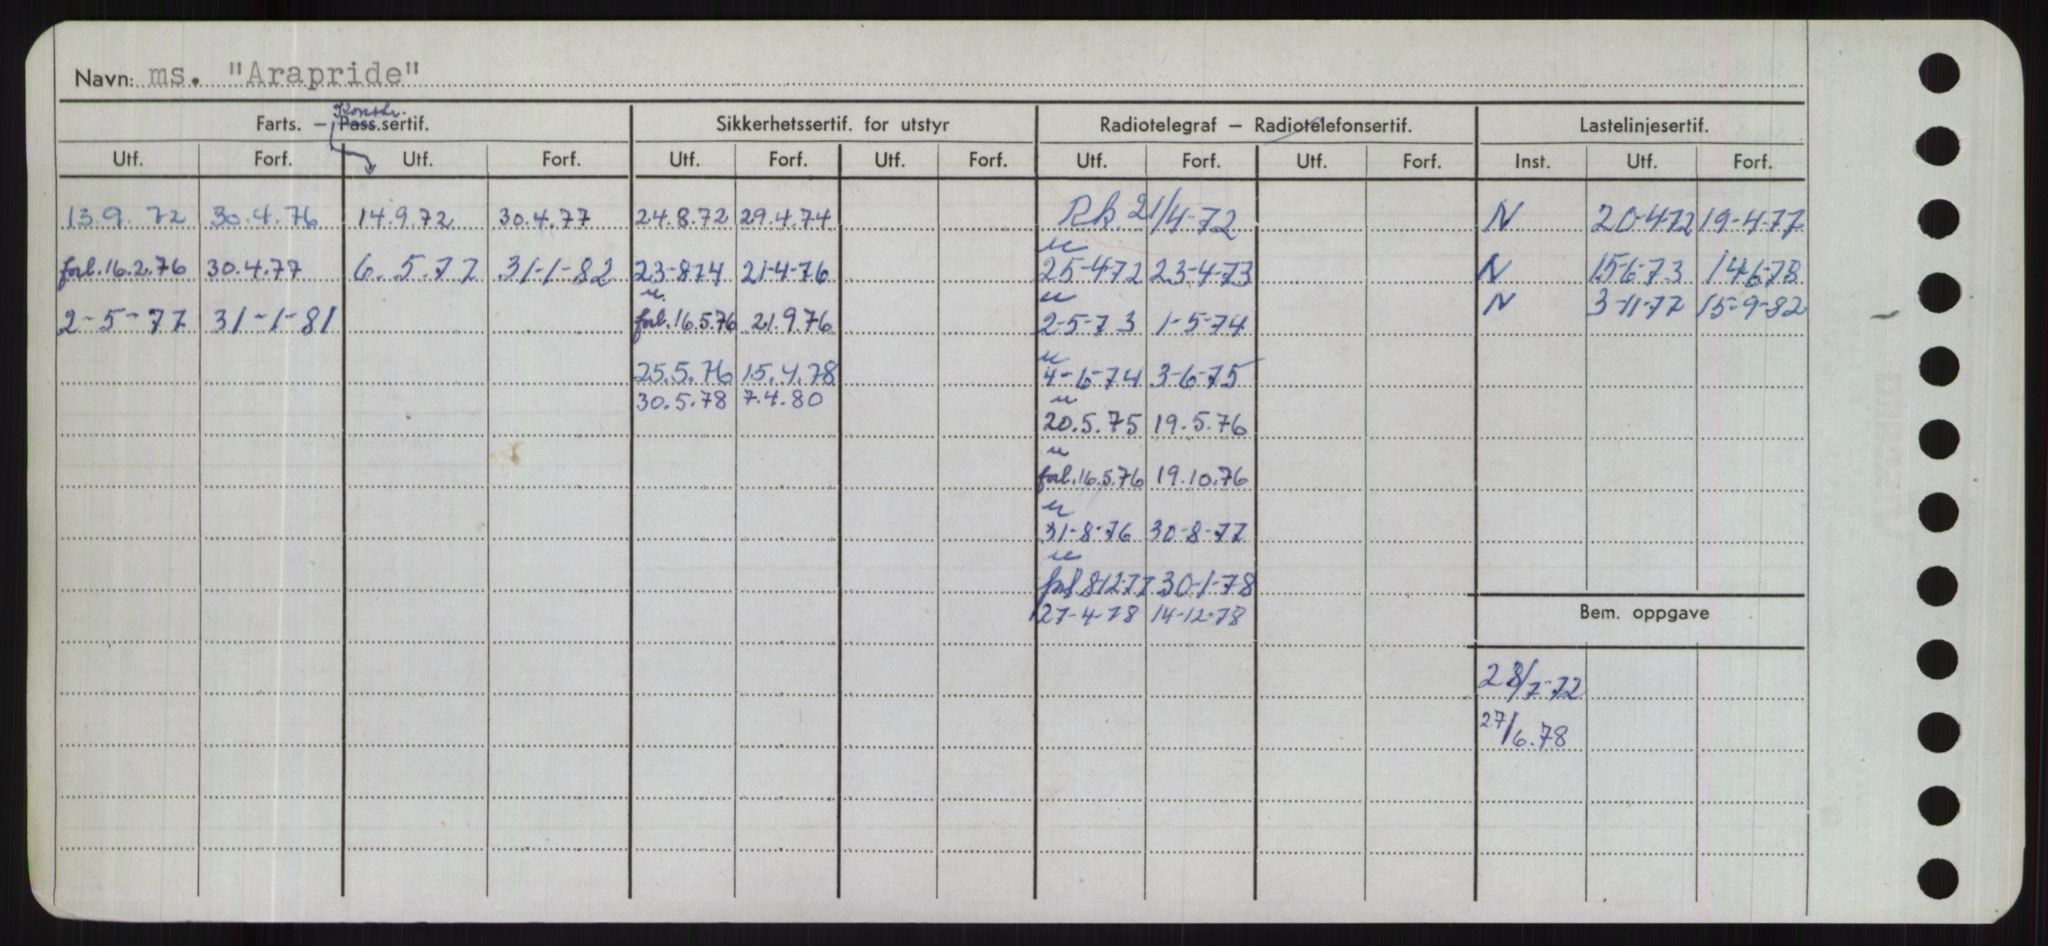 Navn: ms. "Arapride"
Konstr.
Farts. — Pass.sertif. Sikkerhetssertif. for utstyr Radiotelegraf — Radiotelefonsertif. Lastelinjesertif.
Utf. Forf. Utf. Forf. Utf. Forf. Utf. Forf. Utf. Forf. Utf. Forf. Inst. Utf. Forf.
13.9.72 30.4.76 14.9.72 30.4.77 24.8.72 29.4.74 Rk. 21/4-72 N 20-4-72 19-4-77
u
forl.16.2.76 30.4.77 6.5.77 31-1-82 23-8-74 21-4-76 25-4-72 23-4-73 N 15-6-73 14-6-78
u u N 3-11-77 15-9-82
2-5-77 31-1-81 forl.16.5.76 21.9.76 2-5-73 1-5-74
u
25.5.76 15.4.78 4-6-74 3-6-75
30.5.78 7.4.80 u
20.5.75 19.5.76
u
forl.16.5.76 19.10.76
u
31-8-76 30-8-77
u
forl 8-12-77 30-1-78
27-4-78 14-12-78
Bem. oppgave
28/7-72
27/6.78